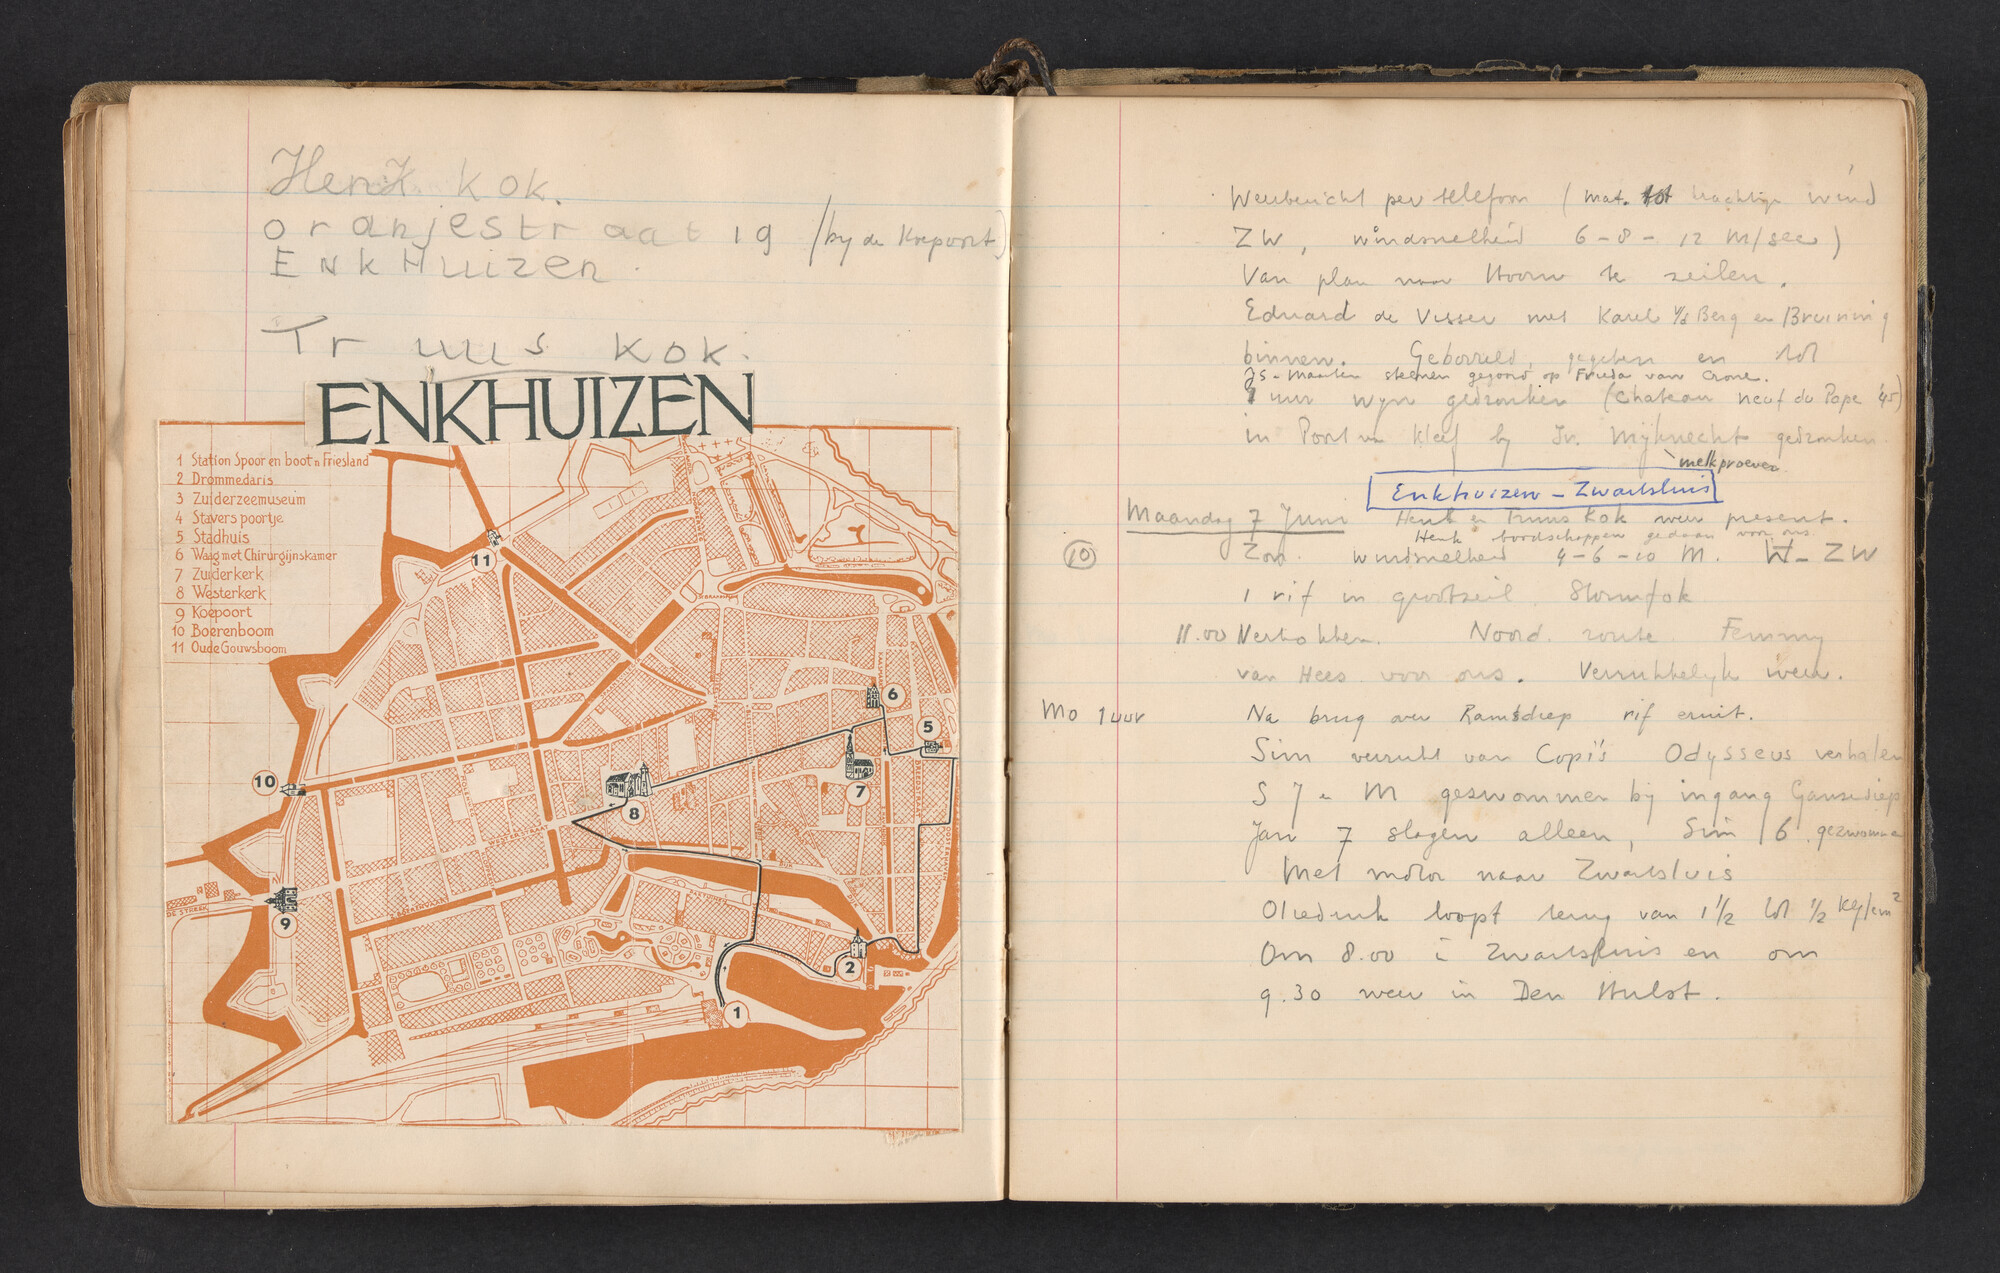 Henk kok.
oranjestraat 19 (by de Koepoort)
ENKHuizen.
Truus kok.
ENKHUIZEN
1 Station Spoor en boot n Friesland
2 Drommedaris
3 Zuiderzeemuseum
4 Stavers poortje
5 Stadhuis
6 Waag met Chirurgijnskamer
7 Zuiderkerk
8 Westerkerk
9 Koepoort
10 Boerenboom
11 Oude Gouwsboom
11
6
5
10
7
8
9
2
1
DE STREEK
Weerbericht per telefoon (mat. tot krachtige wind
ZW, windsnelheid 6-8-12 m/sec)
Van plan naar Hoorn te zeilen.
Eduard de Visser met Karel v/d Berg en Bruining
binnen. Geborreld, gegeten en tot
Js-Maarten stenen gegooid op Frieda van Crone.
1 uur wyn gedronken (Chateau neuf du Pape '45)
in Poort van Kleef by Jr. Mijknecht gedronken.
melkproever
Enkhuizen - Zwartsluis
Maandag 7 Juni Henk en Truus Kok weer present.
Henk boodschappen gedaan voor ons.
10 Zon. windsnelheid 4-6-10 M. W-ZW
1 rif in grootzeil. Stormfok
11.00 Vertrokken. Noord. route Femmy
van Hees voor ons. Verrukkelyk weer.
Mo 1 uur Na brug over Ramsdiep rif eruit.
Sim verrukt van Copi's Odysseus verhalen
S J en M geswommen bij ingang Ganzediep
Jan 7 slagen alleen, Sim 6 gezwommen
Met motor naar Zwartsluis
Oliedruk loopt terug van 1½ tot ½ kg/cm²
Om 8.00 i Zwartsluis en om
9.30 weer in Den Hulst.